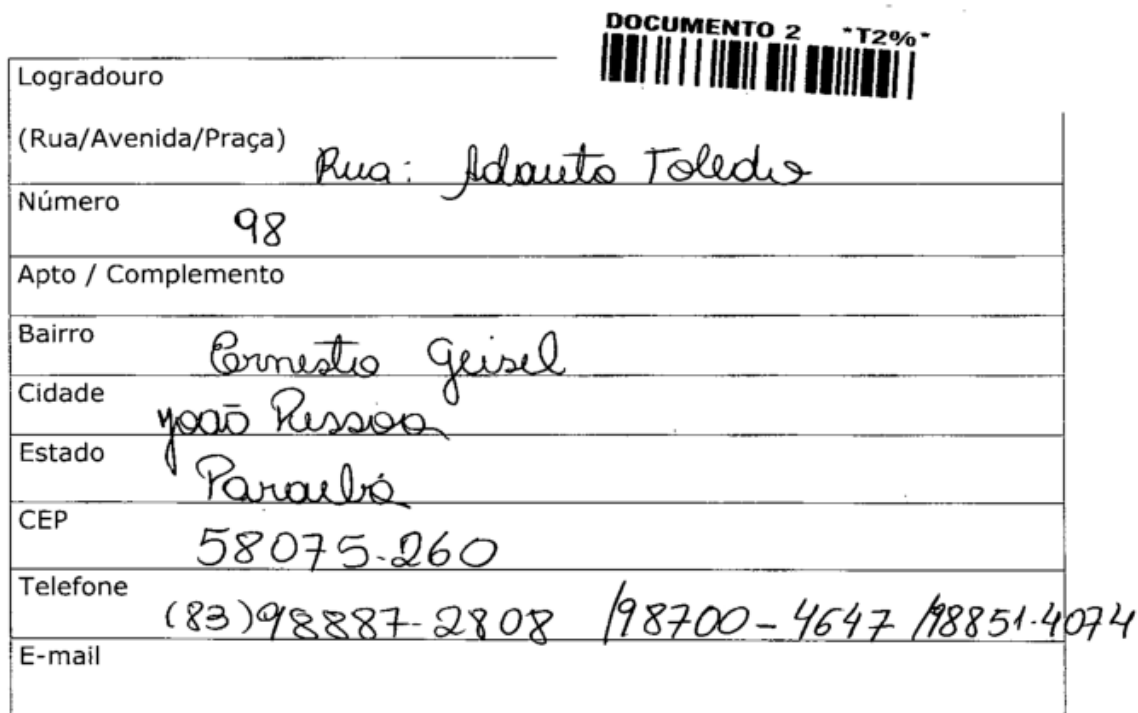 DOCUMENTO 2 *T2%*
Logradouro
(Rua/Avenida/Praça) Rua: Adauto Toledo
Número 98
Apto / Complemento
Bairro Ernesto Geisel
Cidade João Pessoa
Estado Paraíba
CEP 58075-260
Telefone (83)98887-2808 /98700-4647 /98851-4074
E-mail